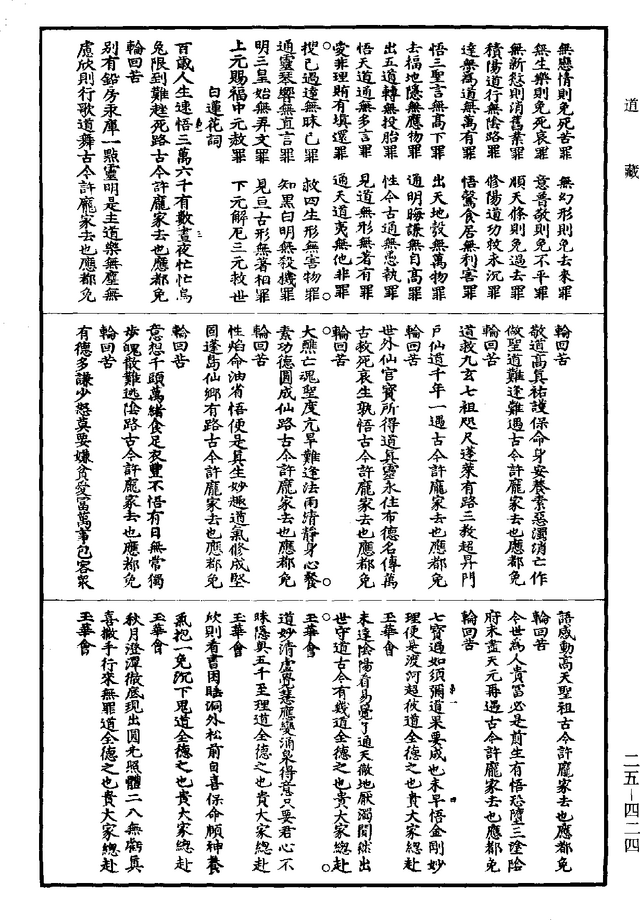 道藏
無戀情則免死苦罪　無幻形則免去來罪
無生樂則免死哀罪　意普敬則免不平罪
無新愆則消舊業罪　順天條則免過去罪
積陽道行無陰路罪　修陽道功救永沉罪
達無萬道無萬有罪　悟鷖食居無利害罪
悟三聖言無高下罪　出天地殼無萬物罪
去福地隱無應物罪　通明晦謙無自高罪
出五道轉無投胎罪　性今古通無愚執罪
悟天道通無多言罪　見道無形無著有罪
愛非理賄有填還罪　通天道夷無他非罪
搜己過達無昧己罪　救四生形無害物罪
通靈琴響無直言罪　知黑白明無殺機罪
明三皇始無弄文罪　見亘古形無著相罪
上元賜福中元赦罪　下元解厄三元救世
白蓮花詞
百歲人生速悟三萬六千有數晝夜忙忙烏
兔限到難趓死路古今許龐家去也應都免
輪回苦
別有鉛房汞庫一點靈明是主道樂無塵無
慮欣則行歌道舞古今許龐家去也應都免
輪回苦
敬道高真祐護保命身安養素惡濁消亡作
做聖道難逢難遇古今許龐家去也應都免
輪回苦
道救九玄七祖咫尺蓬萊有路三教超昇門
戶仙道千年一遇古今許龐家去也應都免
輪回苦
世外仙官寶所得道真靈永住布德名傳萬
古救死哀生孰悟古今許龐家去也應都免
輪回苦
大醮亡魂聖度亢旱難逢法雨清靜身心養
素功德圓成仙路古今許龐家去也應都免
輪回苦
性焰命油省悟便是真生妙趣道氣修成堅
固蓬島仙鄉有路古今許龐家去也應都免
輪回苦
意想千頭萬緒食足衣豐不悟有日無常獨
步魄散難逃陰路古今許龐家去也應都免
輪回苦
有德多謙少怒莫要嫌貧愛富萬事包容眾
語感動高天聖祖古今許龐家去也應都免
輪回苦
今世為人貴富必是前生有悟殆墮三塗陰
府未盡天元再遇古今許龐家去也應都免
輪回苦
七寶過如須彌道果要成也未早悟金剛妙
理便是渡河超彼道全德之也貴大家總赴
玉華會
未達陰陽看易覺了通天徹地厭濁間欲出
世守道古今有幾道全德之也貴大家總赴
玉華會
道妙清虛覺慧應變涌泉得意只要君心不
昧隱奧五千至理道全德之也貴大家總赴
玉華會
欣則看書困睡洞外松前自喜保命順神養
氣抱一免沉下鬼道全德之也貴大家總赴
玉華會
秋月澄潭徹底現出圓光照體二八無虧真
喜撒手行來無罪道全德之也貴大家總赴
玉華會
二五－四二四